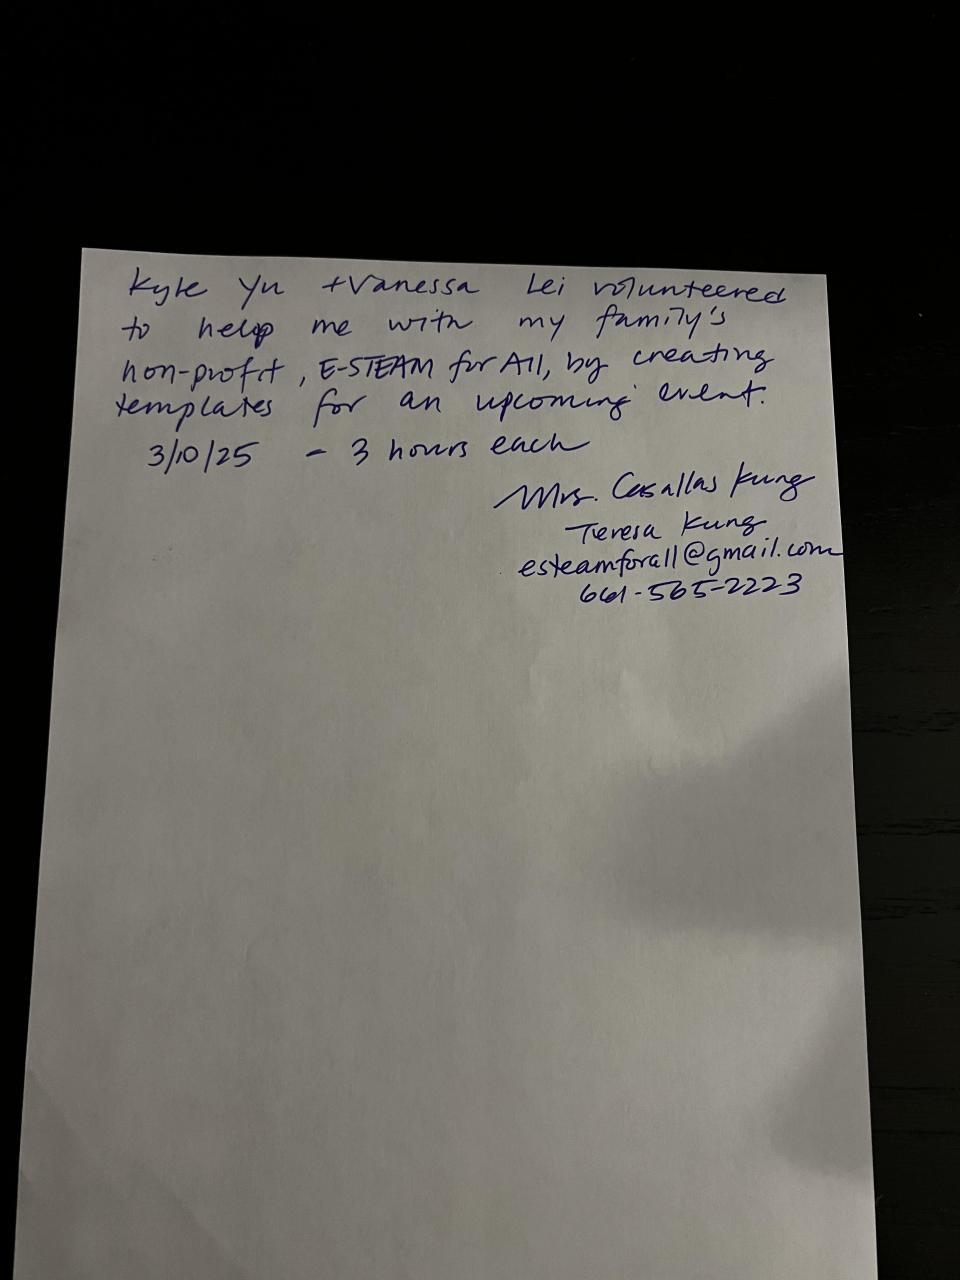 Kyle Yu + Vanessa Lei volunteered
to help me with my family's
non-profit, E-STEAM for All, by creating
templates for an upcoming event.
3/10/25 - 3 hours each
Mrs. Casallas Kung
Teresa Kung
esteamforall@gmail.com
661-565-2223